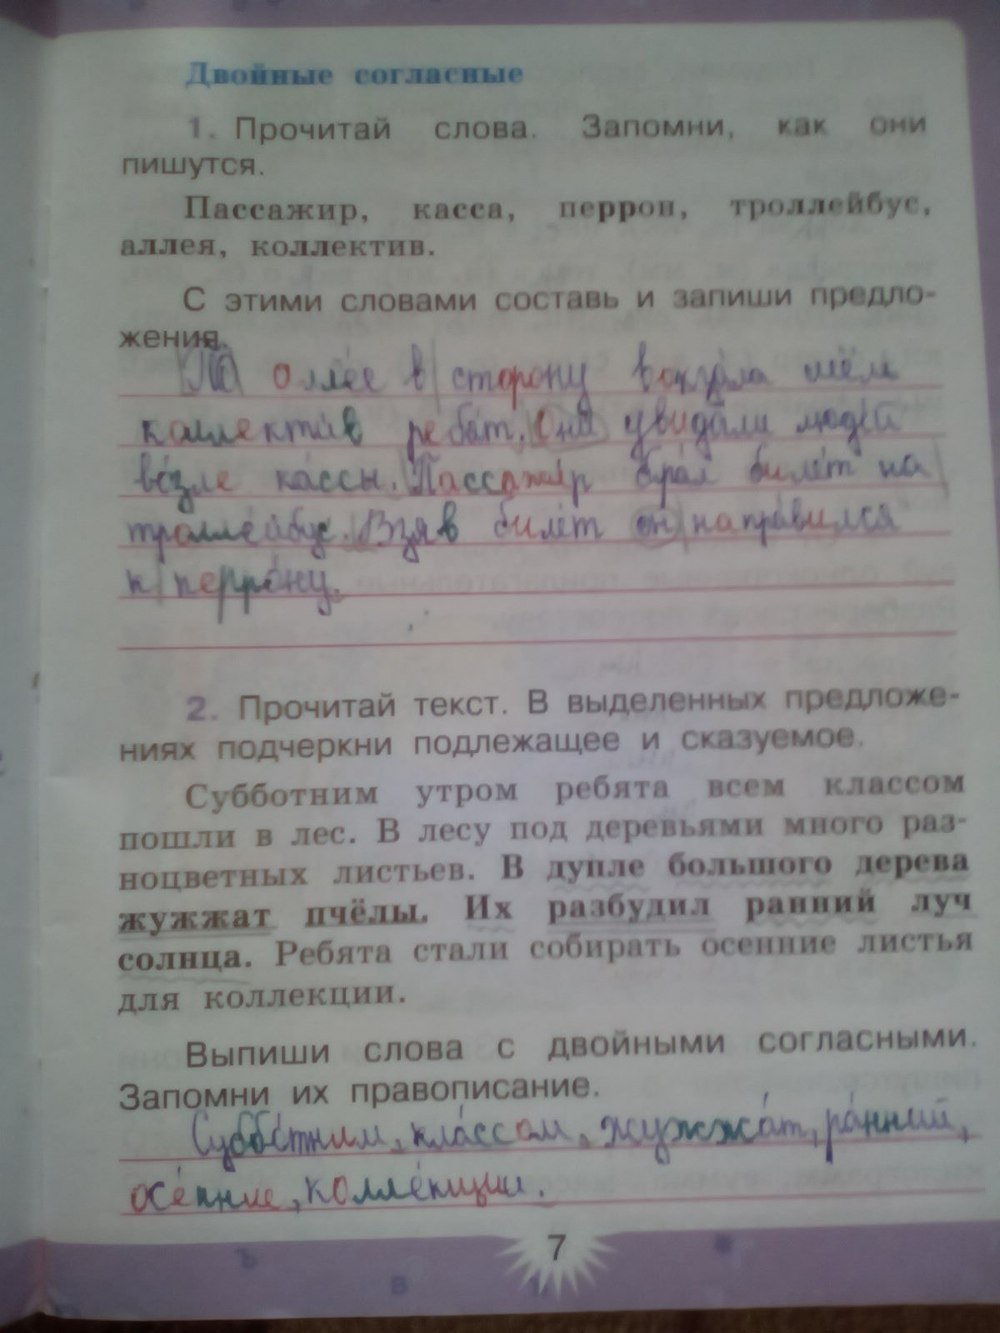 Двойные согласные
1. Прочитай слова. Запомни, как они
пишутся.
Пассажир, касса, перрон, троллейбус,
аллея, коллектив.
С этими словами составь и запиши предло-
жения.
По оллее в сторону вокзала шёл
коллектив ребят. Они увидали людей
возле кассы. Пассажир брал билет на
троллейбус. Взяв билет он направился
к перрону.
2. Прочитай текст. В выделенных предложе-
ниях подчеркни подлежащее и сказуемое.
Субботним утром ребята всем классом
пошли в лес. В лесу под деревьями много раз-
ноцветных листьев. В дупле большого дерева
жужжат пчёлы. Их разбудил ранний луч
солнца. Ребята стали собирать осенние листья
для коллекции.
Выпиши слова с двойными согласными.
Запомни их правописание.
Субботним, классом, жужжат, ранний,
осенние, коллекции.
7